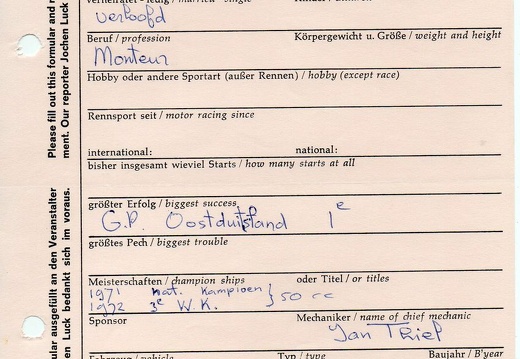 verloofd
Beruf / profession
Körpergewicht u. Größe / weight and height
Monteur
Hobby oder andere Sportart (außer Rennen) / hobby (except race)
Rennsport seit / motor racing since
international: national:
bisher insgesamt wieviel Starts / how many starts at all
größter Erfolg / biggest success
G.P. Oostduitsland 1e
größtes Pech / biggest trouble
Meisterschaften / champion ships oder Titel / or titles
1971 Nat. Kampioen
1972 3e W.K. } 50 cc
Sponsor
Mechaniker / name of chief mechanic
Jan Thiel
Fahrzeug / vehicle Typ / type Baujahr / B'year
Please fill out this formular and r
ment. Our reporter Jochen Luck
ular ausgefüllt an den Veranstalter
en Luck bedankt sich im voraus.